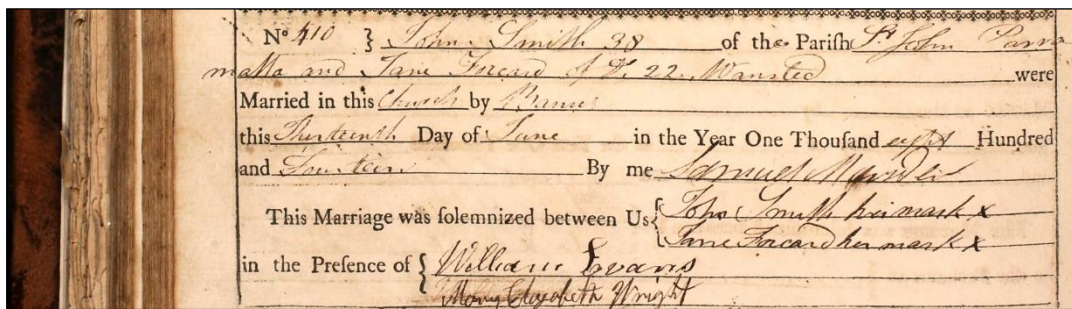 No 410 } John Smith 38 of the Pariſh St John Parra
matta and Jane Forcard of Do. 22. Wansted were
Married in this Church by Banns
this Thirteenth Day of June in the Year One Thouſand eight Hundred
and Fourteen By me Samuel Marsden
This Marriage was ſolemnized between Us { John Smith his mark x
Jane Forcard her mark x
in the Preſence of { William Evans
Mary Elizabeth Wright